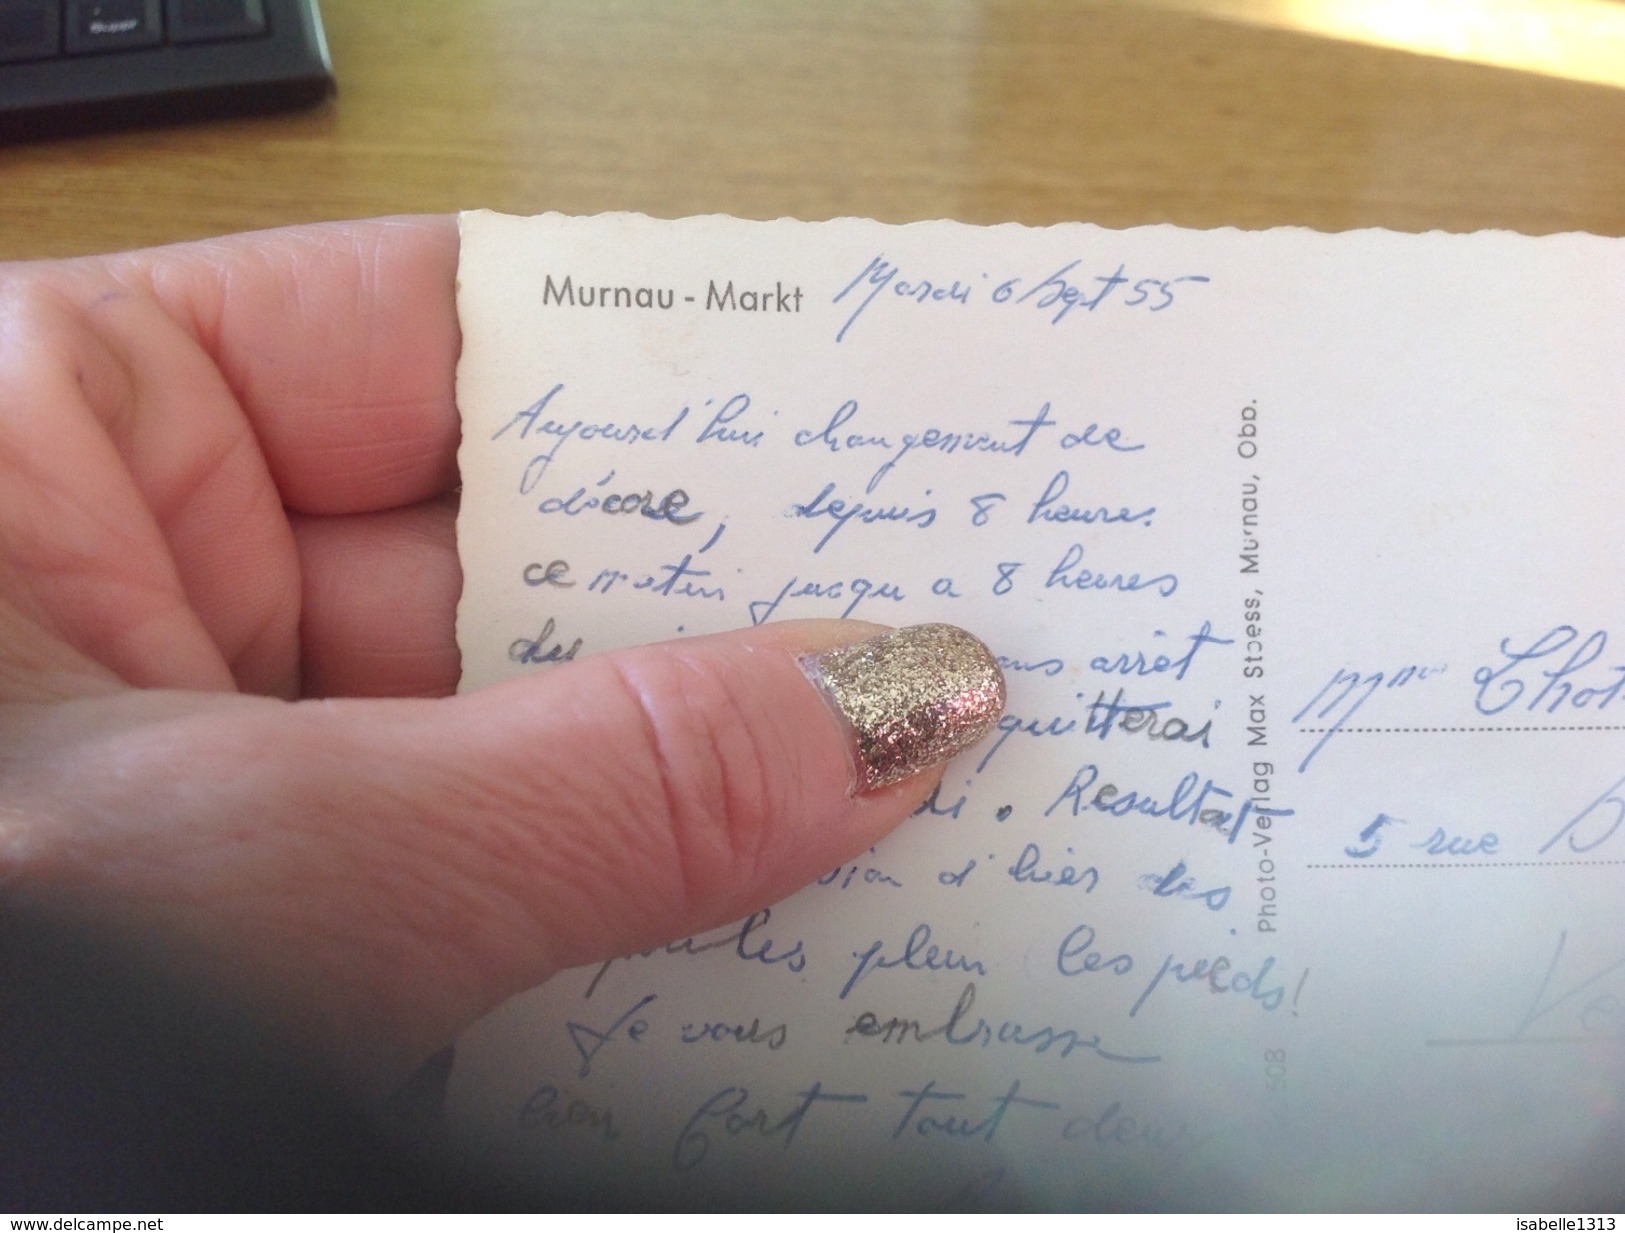 Murnau - Markt Mardi 6 Sept 55
Aujourd'hui changement de
décore, depuis 8 heures
ce matin jusqu'a 8 heures
du
arrêt
quitterai
Resultat
d'hier des
plein les pieds!
Je vous embrasse
bien fort tout deux
Photo-Verlag Max Stoess, Murnau, Obb.
508
Mme Lhot
5 rue
www.delcampe.net
isabelle1313